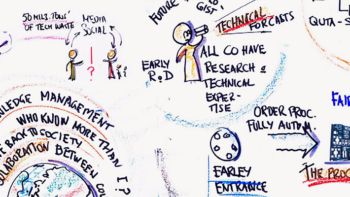 50 MILL. TONS
OF TECH WASTE
MEDIA
SOCIAL
!
?
FUTURE
TECHNICAL
FORCASTS
EARLY
R&D
ALL CO HAVE
RESEARCH &
TECHNICAL
EXPER-
TISE
QUTA-S
KNOWLEDGE MANAGEMENT
WHO KNOW MORE THAN I?
BACK TO SOCIETY
COLLABORATION BETWEEN
ORDER PROC.
FULLY AUTOM.
EARLEY
ENTRANCE
FAI
THE PROC